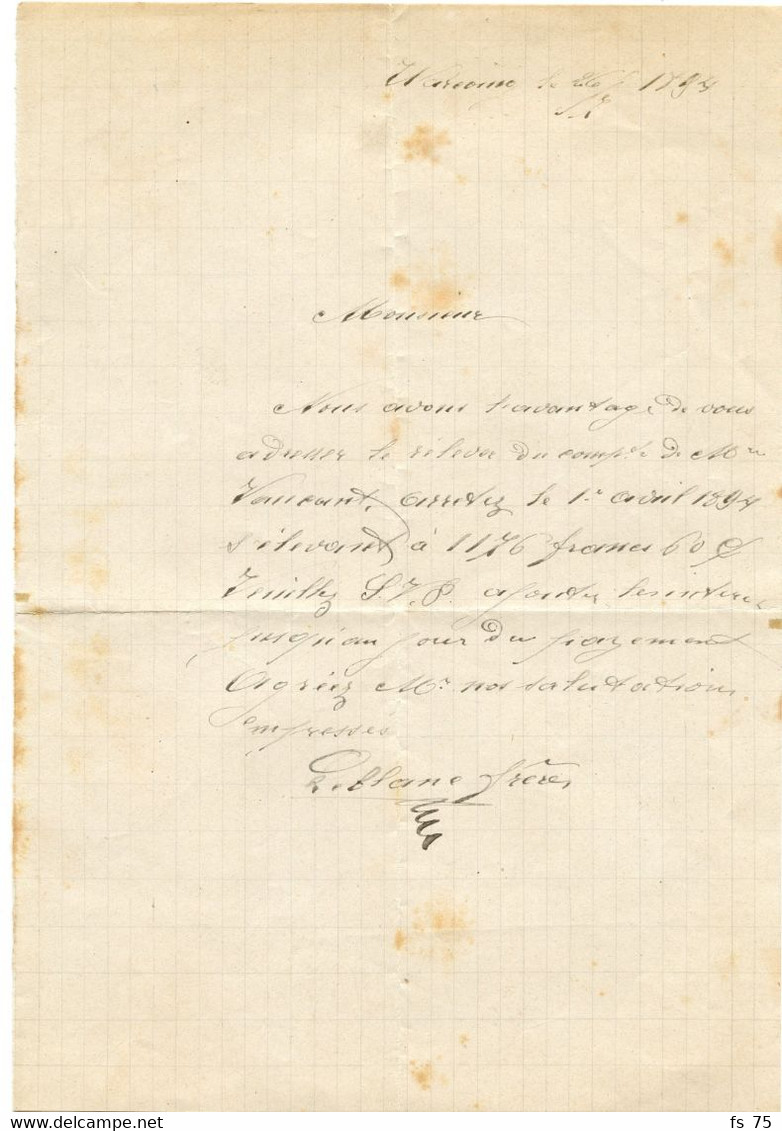 Warcoing le 26/5 1894
Monsieur
Nous avons l'avantage de vous
adresser le rélever du compte de Mr
Vaucant, arritez le 1r avril 1894
s'élevant à 1176 francs 60 c
Veuillez S.V.P. ajouter les interes
jusqu'au jour du payement
Agréez Mr nos salutations
empressés
Leblanc frères
fs 75